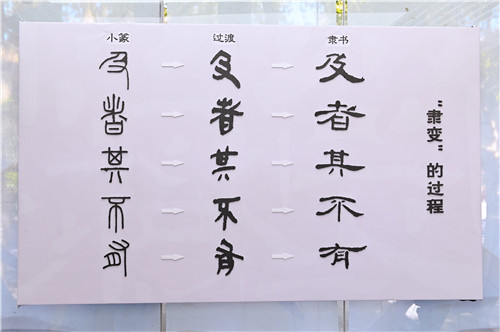 小篆 过渡 隶书
及 → 及 → 及
者 → 者 → 者
其 → 其 → 其
不 → 不 → 不
有 → 有 → 有
“隶变”的过程